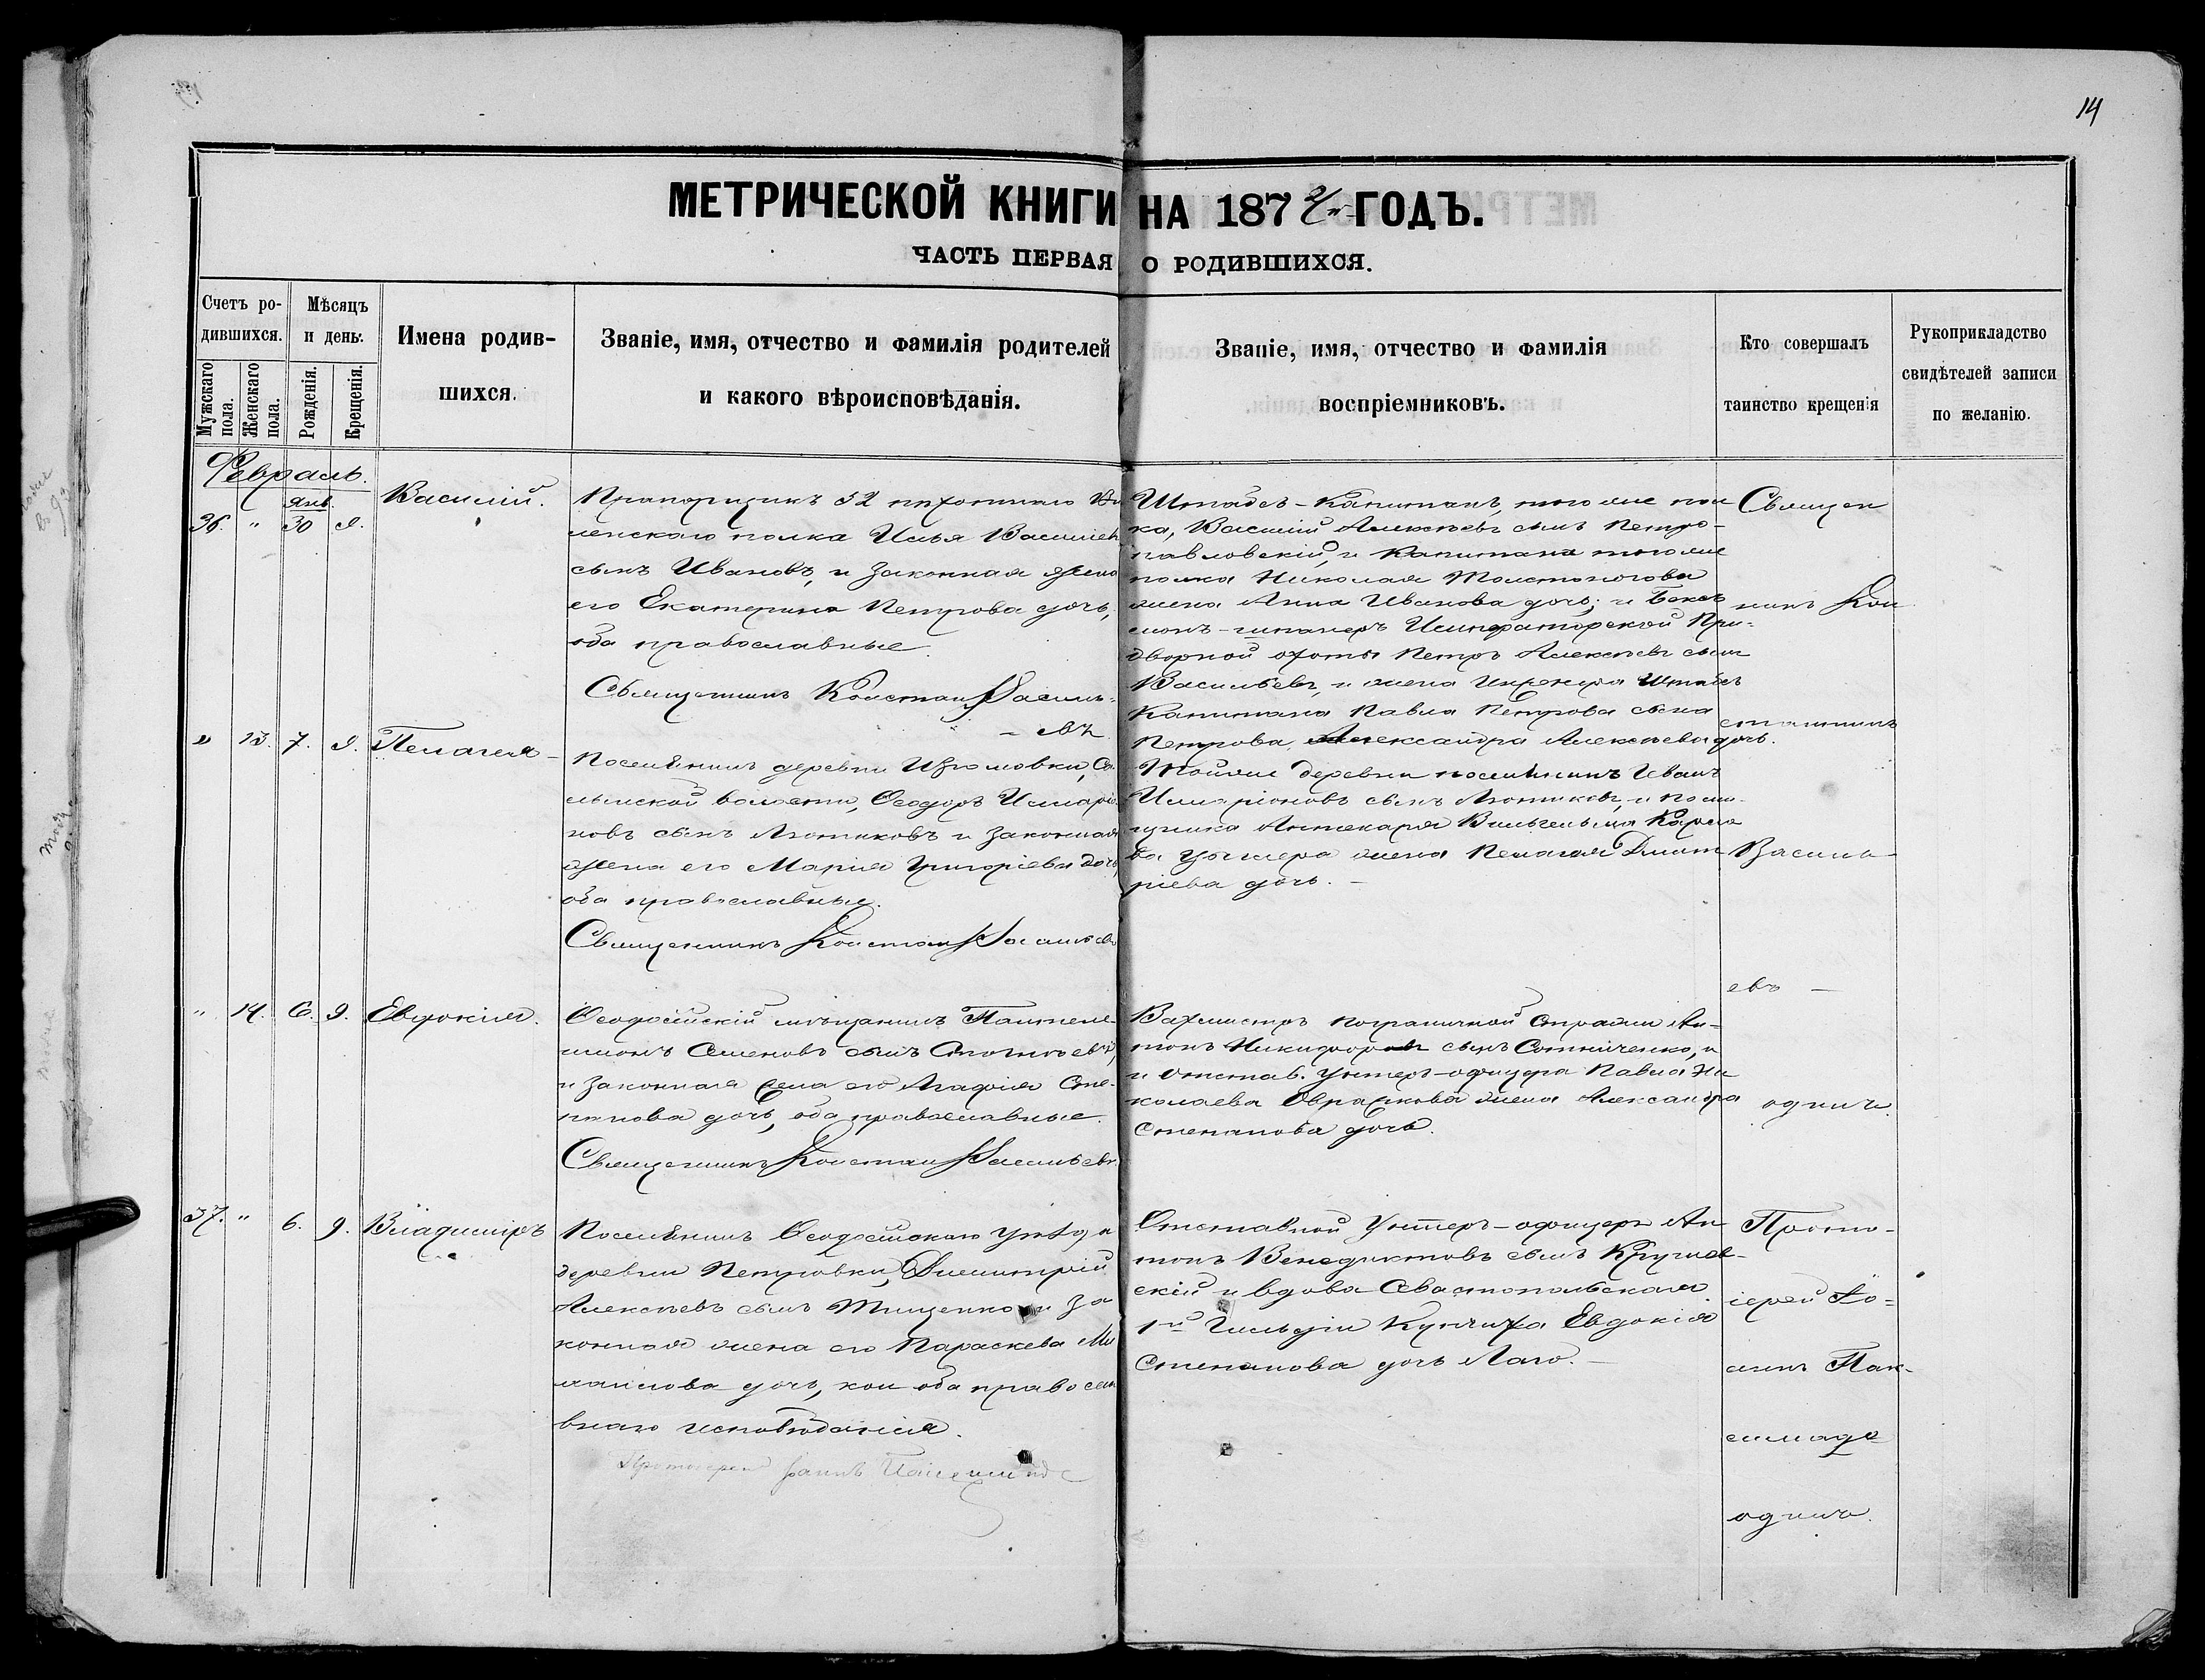 14
МЕТРИЧЕСКОЙ КНИГИ НА 1872 ГОДЪ.
ЧАСТЬ ПЕРВАЯ О РОДИВШИХСЯ.
Счетъ ро-
дившихся.
Мужскаго пола.
Женскаго пола.
Мѣсяцъ
и день.
Рожденія.
Крещенія.
Имена родив-
шихся.
Званіе, имя, отчество и фамилія родителей
и какого вѣроисповѣданія.
Званіе, имя, отчество и фамилія
воспріемниковъ.
Кто совершалъ
таинство крещенія
Рукоприкладство
свидѣтелей записи
по желанію.
Февраль.
36. " Янв. 30
Василій.
Прапорщикъ 52 пѣхотнаго Ви
ленскаго полка Илья Васильев
сынъ Ивановъ, и законная жена
его Екатерина Петрова дочь,
оба православные.
Священникъ Констан Василь-
евъ
Штабсъ-Капитанъ, того же пол
ка, Василій Алексѣевъ сынъ Петро-
павловскій, и Капитана того же
полка Николая Толстоногова
жена Анна Иванова дочь; и
Императорской При-
дворной охоты Петръ Алексѣевъ сынъ
Васильевъ, и жена Штабсъ
Капитана Павла Петрова сына
Петрова Александра Алексѣева дочь.
" 13. 7. 9.
Пелагея
Поселянинъ деревни Изюмовки, Са-
лынской волости, Ѳеодоръ Илларіо
новъ сынъ Лютиковъ и законная
жена его Марія Григоріева дочь,
оба православные.
Священникъ Констан Васильевъ
Той же деревни поселянинъ Иванъ
Илларіоновъ сынъ Лютиковъ, и
Аптекаря Вильгельма Карло
ва жена Пелагея Димит
ріева дочь.
Священ
никъ Кон
стантинъ
Василь
евъ
одинъ.
" 14. 6. 9.
Евдокія.
Ѳеодосійскій мѣщанинъ Пантеле-
имонъ Семеновъ сынъ
и законная жена его Агафія Сте-
панова дочь, оба православные.
Священникъ Констан Васильевъ
Вахмистръ пограничной Стражи Ан-
тонъ Никифоровъ сынъ Сотниченко, и
и отстав. унтеръ-офицера Павла Ни
колаева жена Александра
Степанова дочь.
37. " 6. 9.
Владиміръ
Поселянинъ Ѳеодосійскаго уѣзда
деревни Петровки, Димитрій
Алексѣевъ сынъ Тищенко и за
конная жена его Параскева Ми
хаилова дочь, кои оба православ
внаго исповѣданія.
Протоіерей Іоаннъ
Отставной Унтеръ-офицеръ Ан
тонъ Венедиктовъ сынъ
скій и вдова Севастопольскаго
1й Гильдіи Купчиха Евдокія
Степанова дочь Лаго.
Прото-
іерей Іо-
аннъ Пак-
симаде
одинъ.